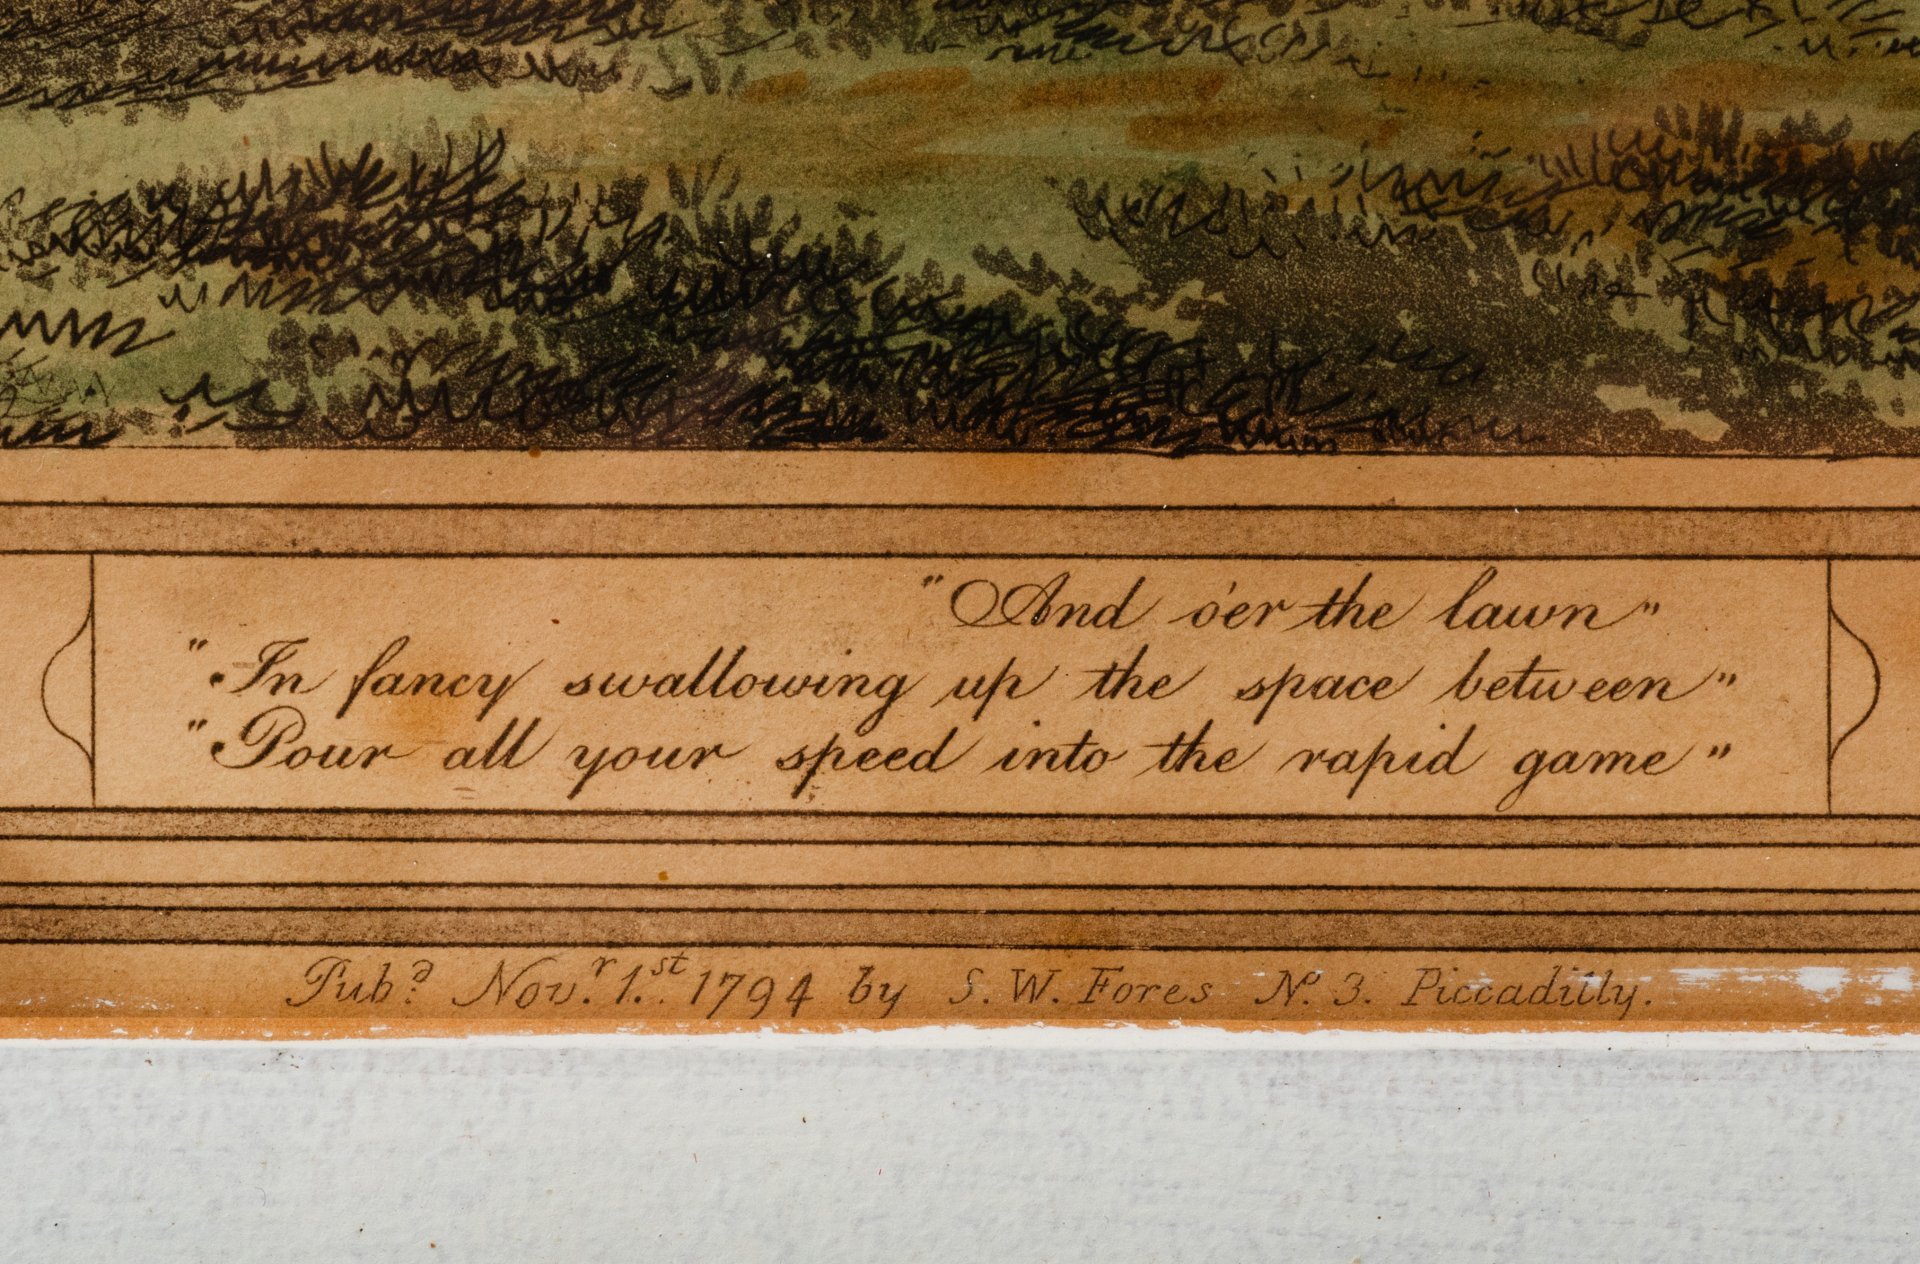 "And o'er the lawn"
"In fancy swallowing up the space between"
"Pour all your speed into the rapid game"
Pub.d Nov.r 1.st 1794 by S. W. Fores No. 3. Piccadilly.